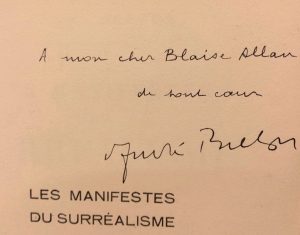 A mon cher Blaise Allan
de tout cœur
André Breton
LES MANIFESTES
DU SURRÉALISME